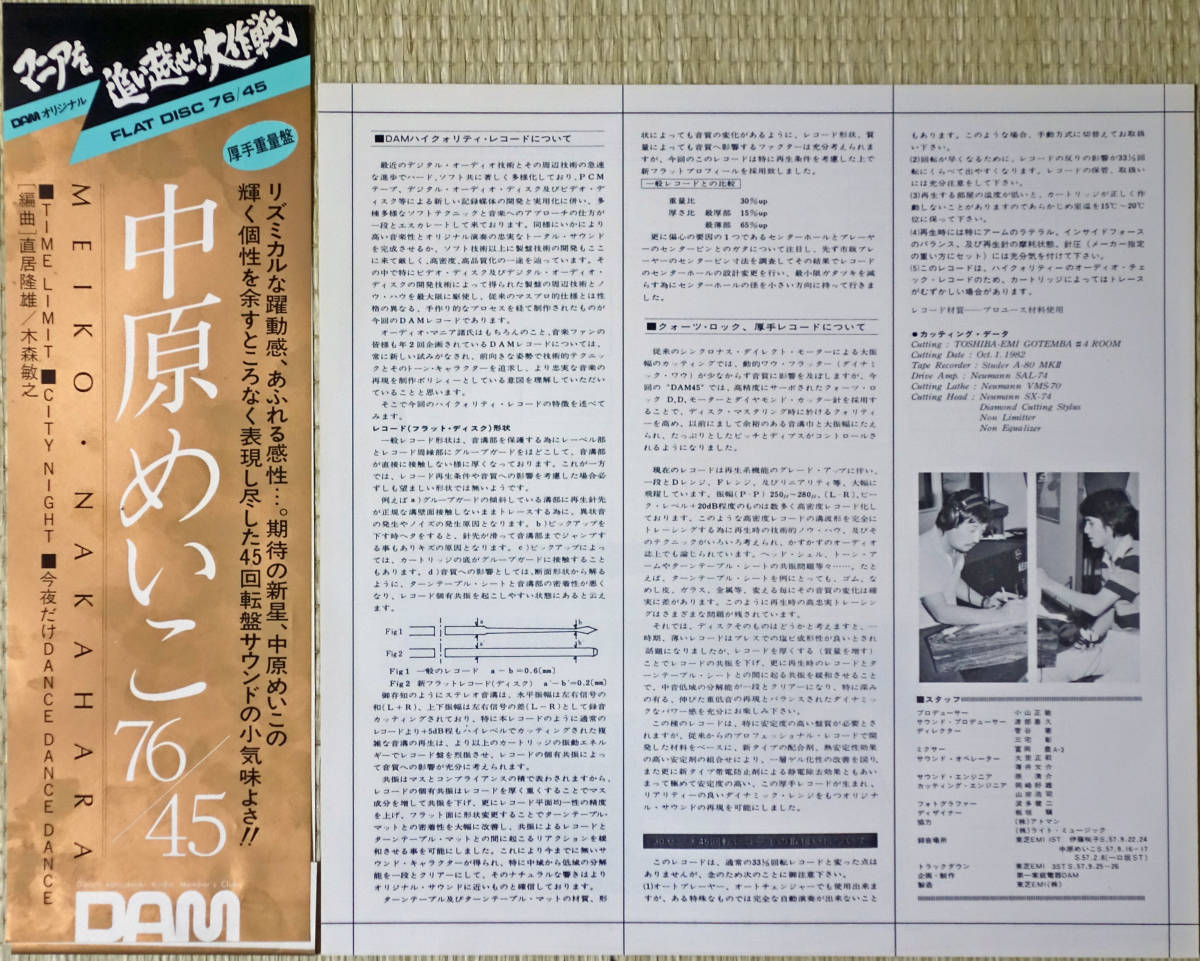 マニアを
追い越せ!大作戦
DAMオリジナル
FLAT DISC 76/45
厚手重量盤
中原めいこ 76/45
リズミカルな躍動感、あふれる感性…。期待の新星、中原めいこの
輝く個性を余すところなく表現し尽した45回転盤サウンドの小気味よさ!!
MEIKO・NAKAHARA
■TIME LIMIT ■CITY NIGHT ■今夜だけDANCE DANCE DANCE
[編曲]直居隆雄/木森敏之
DAM
■DAMハイクォリティ・レコードについて
最近のデジタル・オーディオ技術とその周辺技術の急速
な進歩でハード、ソフト共に著しく多様化しており、PCM
テープ、デジタル・オーディオ・ディスク及びビデオ・デ
ィスク等による新しい記録媒体の開発と実用化に伴い、多
種多様なソフトテクニックと音楽へのアプローチの仕方が
一段とエスカレートして来ております。同様にいかにより
高い音楽性とオリジナル演奏の忠実なトータル・サウンド
を完成させるか、ソフト技術以上に製盤技術の開発もここ
に来て厳しく、高密度、高品質化の一途を辿っています。そ
の中で特にビデオ・ディスク及びデジタル・オーディオ・
ディスクの開発技術によって得られた製盤の周辺技術とノ
ウ・ハウを最大限に駆使し、従来のマスプロ的仕様とは性
格の異なる、手作り的なプロセスを経て制作されたものが
今回のDAMレコードであります。
オーディオ・マニア諸氏はもちろんのこと、音楽ファンの
皆様も年2回企画されているDAMレコードにつきましては、
常に新しい試みがなされ、前向きな姿勢で技術的テクニッ
クとそのトーン・キャラクターを追求し、より忠実な音楽の
再現を制作ポリシーとしている意図を理解していただいて
いることと思います。
そこで今回のハイクォリティ・レコードの特徴を述べて
みます。
レコード(フラット・ディスク)形状
一般レコード形状は、音溝部を保護する為にレーベル部
とレコード周縁部にグルーブガードをほどこして、音溝部
が直接に接触しない様に厚くなっております。これが一方
では、レコード再生条件や音質への影響を考慮した場合必
ずしも望ましい形状では無いようです。
例えばa)グルーブガードの傾斜している溝部に再生針先
が正規な溝壁面接触しないままトレースする為に、異状音
の発生やノイズの発生原因となります。b)ピックアップを
下す時ヘタをすると、針先が滑って音溝部までジャンプす
る事もありキズの原因となります。c)ピックアップによっ
ては、カートリッジの底がグルーブガードに接触すること
もあります。d)音質への影響としては、断面形状から解る
ように、ターンテーブル・シートと音溝部の密着性が悪く
なり、レコード個有共振を起こしやすい状態にあると云え
ます。
Fig1
a
b
Fig2
Fig1 一般のレコード a－b＝0.6(mm)
Fig2 新フラットレコード(ディスク) a′－b′＝0.2(mm)
御存知のようにステレオ音溝は、水平振幅は左右信号の
和(L＋R)、上下振幅は左右信号の差(L－R)として録音
カッティングされており、特に本レコードのように通常の
レコードより+5dB程もハイレベルでカッティングされた複
雑な音溝の再生は、より以上のカートリッジの振動エネル
ギーでレコード盤を烈振させ、レコードの個有共振によっ
て音質への影響が充分に考えられます。
共振はマスとコンプライアンスの積で表わされますから、
レコードの個有共振はレコードを厚く重くすることでマス
成分を増して共振を下げ、更にレコード平面均一性の精度
を上げ、フラット面に形状変更することでターンテーブル・
マットとの密着性を大幅に改善し、共振によるレコードと
ターンテーブル・マットとの間に起こるリアクションを緩
和させる事を可能にしました。これにより今までに無いサウ
ンド・キャラクターが得られ、特に中域から低域の分解
能を一段とクリアーにして、そのナチュラルな響きはより
オリジナル・サウンドに近いものと確信しております。
ターンテーブル及びターンテーブル・マットの材質、形
状によっても音質の変化があるように、レコード形状、質
量によっても音質へ影響するファクターは充分考えられま
すが、今回のこのレコードは特に再生条件を考慮した上で
新フラットプロフィールを採用致しました。
一般レコードとの比較
重量比 30％up
厚さ比 最厚部 15％up
最薄部 65％up
更に偏心の要因の1つであるセンターホールとプレーヤ
ーのセンターピンとのガタについて注目し、先ず市販プレ
ーヤーのセンターピン寸法を調査してその結果でレコード
のセンターホールの設計変更を行い、最小限ガタツキを減
らす為にセンターホールの径を小さい方向に持って行きま
した。
■クォーツ・ロック、厚手レコードについて
従来のシンクロナス・ダイレクト・モーターによる大振
幅のカッティングでは、動的ワウ・フラッター(ダイナミ
ック・ワウ)が少なからず音質に影響を及ぼしますが、今
回の“DAM45”では、高精度にサーボされたクォーツ・ロ
ック D,D,モーターとダイヤモンド・カッター針を採用す
ることで、ディスク・マスタリング時に於けるクォリティ
ーを高め、以前にまして余裕のある音溝巾と大振幅にたえ
られ、たっぷりとしたピッチとディプスがコントロールさ
れるようになりました。
現在のレコードは再生系機能のグレード・アップに伴い、
一段とDレンジ、Fレンジ、及びリニアリティ等、大幅に
飛躍しています。振幅(P・P)250μ～280μ、(L－R)、ピー
ク・レベル＋20dB程度のものは数多く高密度レコード化し
ております。このような高密度レコードの溝波形を完全に
トレーシングする為に再生時の技術的ノウ・ハウ、及びそ
のテクニックがいろいろ考えられ、かずかずのオーディオ
誌上でも論じられています。ヘッド・シェル、トーン・ア
ームやターンテーブル・シートの共振問題等々……、たと
えば、ターンテーブル・シートを例にとっても、ゴム、な
めし皮、ガラス、金属等、変える毎にその音質の変化は確
実に差があります。このように再生時の高忠実トレーシン
グはさまざまな問題が残されています。
それでは、ディスクそのものはどうかと考えますと、一
時期、薄いレコードはプレスでの塩ビ成形性が良いとされ
話題になりましたが、レコードを厚くする(質量を増す)
ことでレコードの共振を下げ、更に再生時のレコードとタ
ーンテーブル・シートとの間に起る共振を緩和させること
で、中音低域の分解能が一段とクリアーになり、特に深み
の有る、伸びた重低音の再現とバランスされたダイナミッ
クなパワー感を充分にお楽しみ下さい。
この種のレコードは、特に安定度の高い盤質が必要とさ
れますが、従来からのプロフェッショナル・レコードで開
発した材料をベースに、新タイプの配合剤、熱安定性効果
の高い安定剤の組合せにより、一層ゲル化性の改善を図り、
また更に新タイプ帯電防止剤による静電除去効果ともあい
まって極めて安定度の高い、この厚手レコードが生まれ、
リアリティーの良いダイナミック・レンジをもつオリジナ
ル・サウンドの再現を可能にしました。
このレコードは、通常の33⅓回転レコードと変った点は
ありませんが、念のため次のことに御注意下さい。
(1)オートプレーヤー、オートチェンジャーでも使用出来ま
すが、ある特殊なものでは完全な自動演奏が出来ないこと
もあります。このような場合、手動方式に切替えてお取扱
い下さい。
(2)回転が早くなるために、レコードの反りの影響が33⅓回
転にくらべて出やすくなります。レコードの保管、取扱い
には充分注意をして下さい。
(3)再生する部屋の温度が低いと、カートリッジが正しく作
動しないことがありますのであらかじめ室温を15℃～20℃
位に保って下さい。
(4)再生時には特にアームのラテラル、インサイドフォース
のバランス、及び再生針の摩耗状態、針圧(メーカー指定
の重い方にセット)には充分気を付けて下さい。
(5)このレコードは、ハイクォリティーのオーディオ・チェ
ック・レコードのため、カートリッジによってはトレース
がむずかしい場合があります。
レコード材質──プロユース材料使用
●カッティング・データ
Cutting : TOSHIBA-EMI GOTEMBA #4 ROOM
Cutting Date : Oct. 1, 1982
Tape Recorder : Studer A-80 MKII
Drive Amp. : Neumann SAL-74
Cutting Lathe : Neumann VMS-70
Cutting Head : Neumann SX-74
Diamond Cutting Stylus
Non Limitter
Non Equalizer
■スタッフ
プロデューサー 小山正敏
サウンド・プロデューサー 渡部喜久
ディレクター
ミキサー
サウンド・オペレーター 大里正和
サウンド・エンジニア
カッティング・エンジニア
フォトグラファー
デザイナー
協力 (株)アトマン
(株)ライト・ミュージック
録音場所 東芝EMI 1ST
中原めいこ S.57.9.16～17
トラックダウン 東芝EMI 3ST S.57.9.25～26
企画・制作 第一家庭電器DAM
製造 東芝EMI(株)